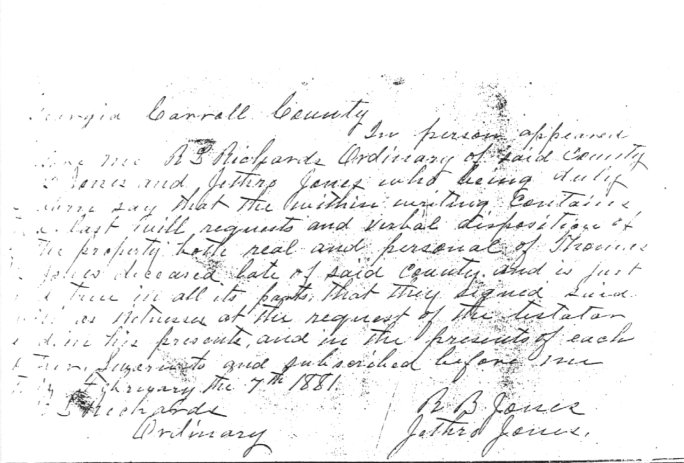 Georgia Carroll County
In person appeared
me R S Richards Ordinary of said County
Jones and Jethro Jones who being duly
say that the within writing Contains
last will requests and verbal disposition of
the property both real and personal of Thomas
Jones deceased late of said County, and is just
true in all its parts, that they signed said
as Witnesses at the request of the testator
in his presents, and in the presents of each
and subscribed before me
February the 7th 1881.
S Richards R B Jones
Ordinary Jethro Jones.